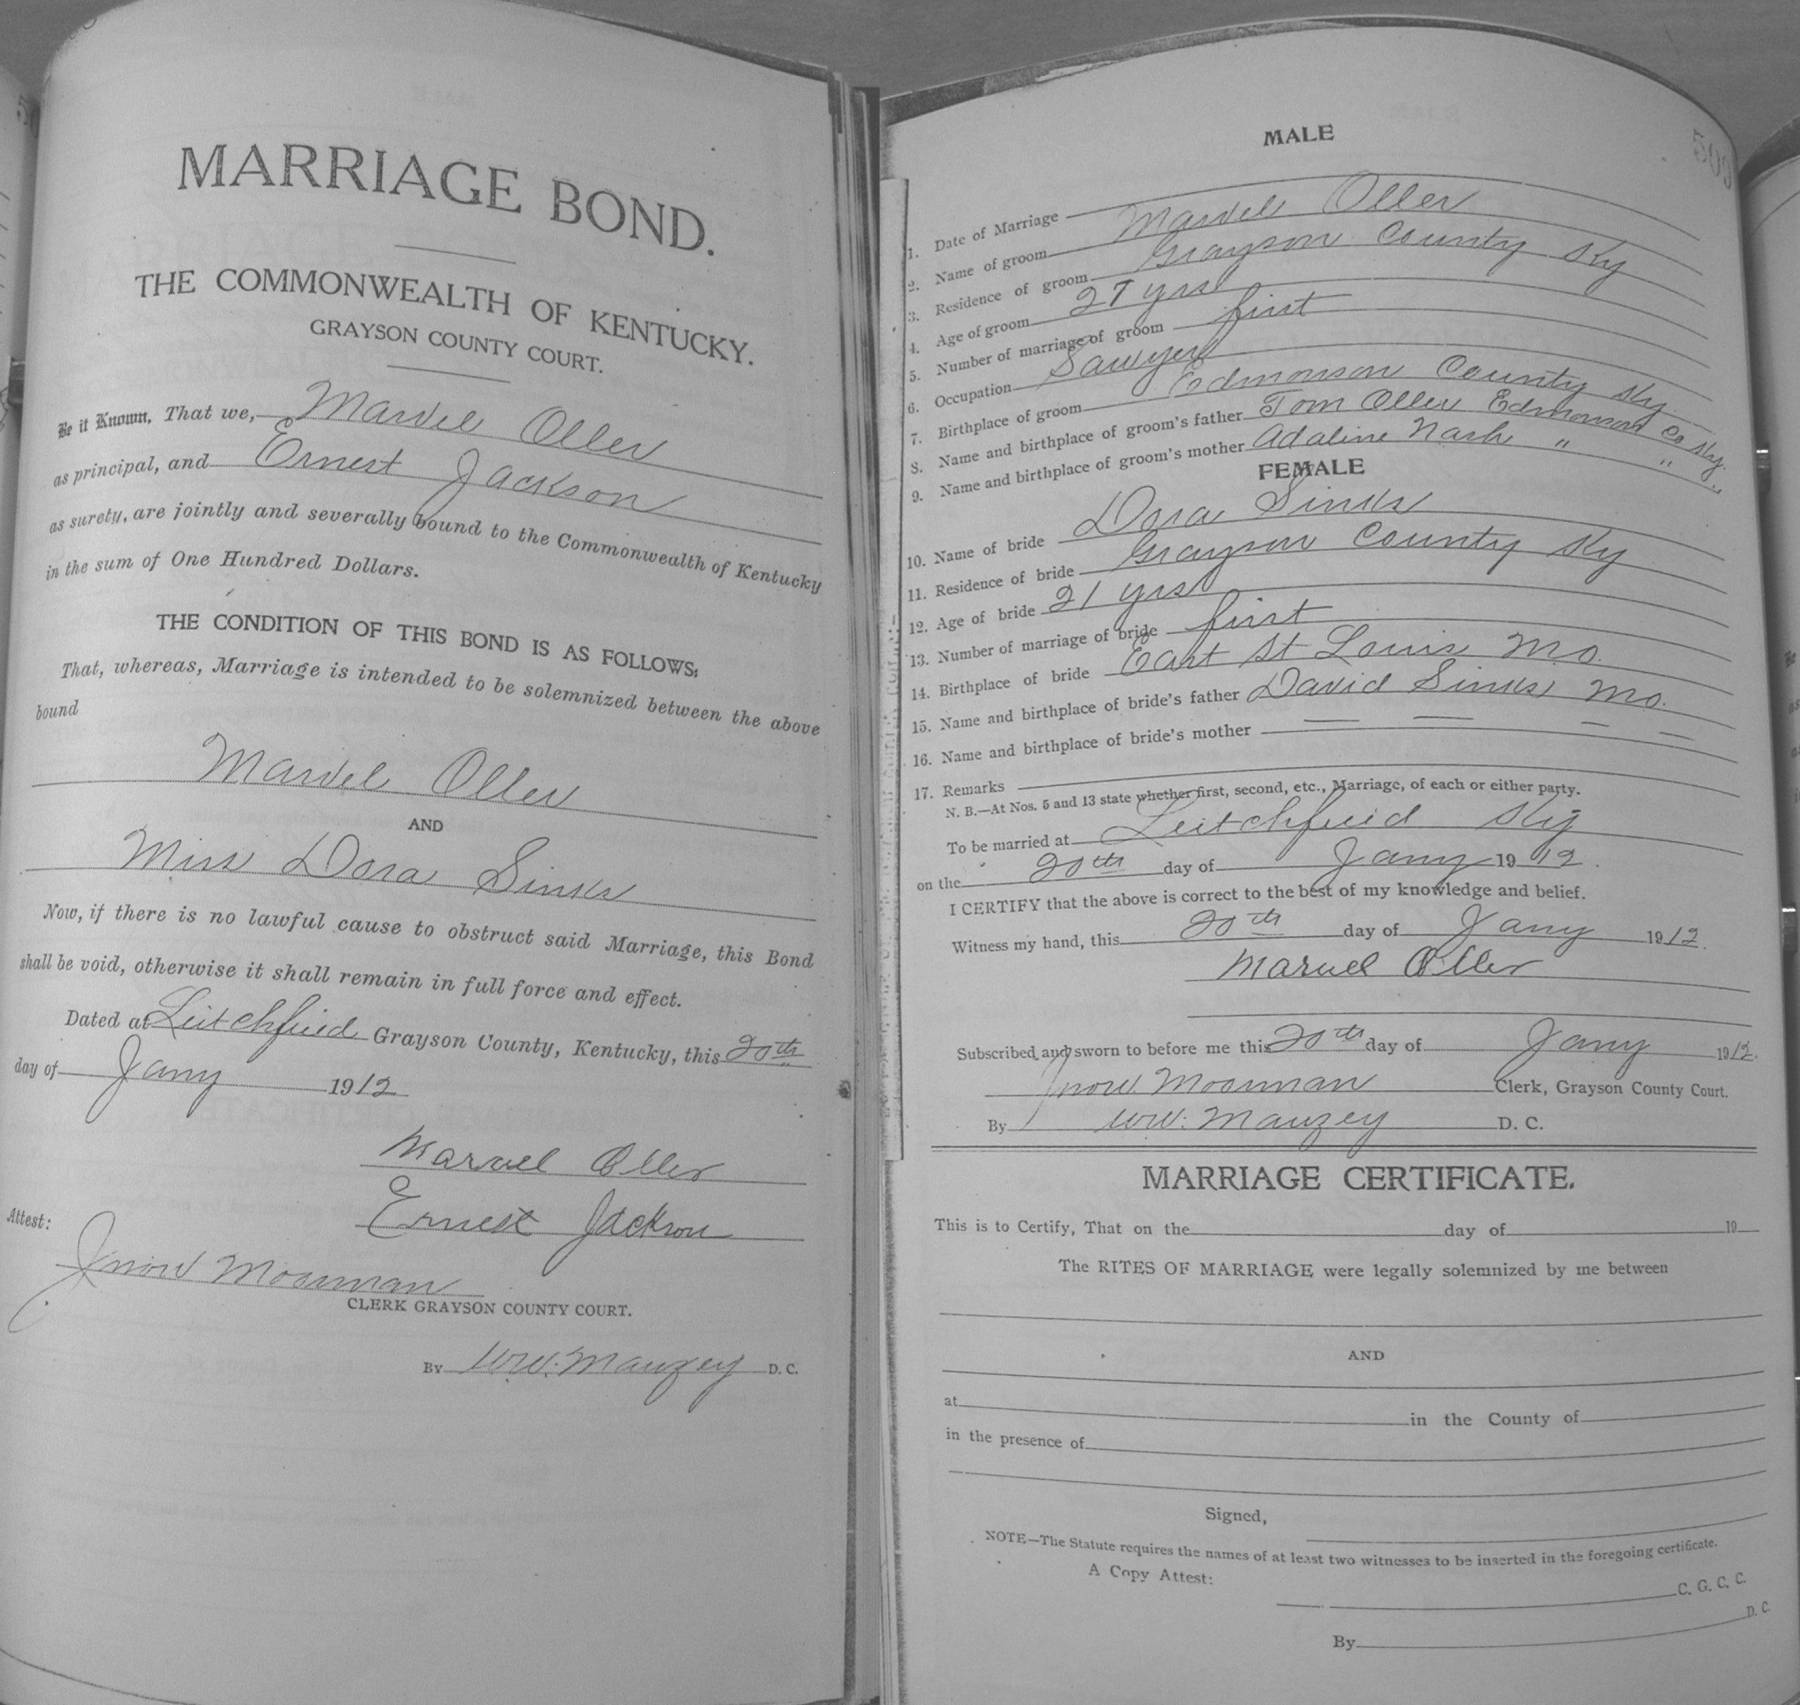 MARRIAGE BOND.
THE COMMONWEALTH OF KENTUCKY.
GRAYSON COUNTY COURT.
Be it Known, That we, Marvel Oller
as principal, and Ernest Jackson
as surety, are jointly and severally bound to the Commonwealth of Kentucky
in the sum of One Hundred Dollars.
THE CONDITION OF THIS BOND IS AS FOLLOWS:
That, whereas, Marriage is intended to be solemnized between the above
bound
Marvel Oller
AND
Miss Dora Sinks
Now, if there is no lawful cause to obstruct said Marriage, this Bond
shall be void, otherwise it shall remain in full force and effect.
Dated at Leitchfield Grayson County, Kentucky, this 20th
day of Jany 1912
Marvel Oller
Ernest Jackson
Attest:
Jnow Moorman
CLERK GRAYSON COUNTY COURT.
By WW. Mauzey D. C.
509
MALE
1. Date of Marriage
2. Name of groom Marvel Oller
3. Residence of groom Grayson County Ky
4. Age of groom 27 yrs
5. Number of marriage of groom first
6. Occupation Sawyer
7. Birthplace of groom Edmonson County Ky
8. Name and birthplace of groom's father Tom Oller Edmonson Co Ky.
9. Name and birthplace of groom's mother Adaline Nash " "
FEMALE
10. Name of bride Dora Sinks
11. Residence of bride Grayson County Ky
12. Age of bride 21 yrs
13. Number of marriage of bride first
14. Birthplace of bride East St Louis Mo.
15. Name and birthplace of bride's father David Sinks Mo.
16. Name and birthplace of bride's mother — — — —
17. Remarks
N. B.—At Nos. 5 and 13 state whether first, second, etc., Marriage, of each or either party.
To be married at Leitchfield Ky
on the 20th day of Jany 1912.
I CERTIFY that the above is correct to the best of my knowledge and belief.
Witness my hand, this 20th day of Jany 1912.
Marvel Oller
Subscribed and sworn to before me this 20th day of Jany 1912.
Jnow Moorman Clerk, Grayson County Court.
By WW. Mauzey D. C.
MARRIAGE CERTIFICATE.
This is to Certify, That on the day of 19
The RITES OF MARRIAGE were legally solemnized by me between
AND
at in the County of
in the presence of
Signed,
NOTE—The Statute requires the names of at least two witnesses to be inserted in the foregoing certificate.
A Copy Attest:
C. G. C. C.
By D. C.